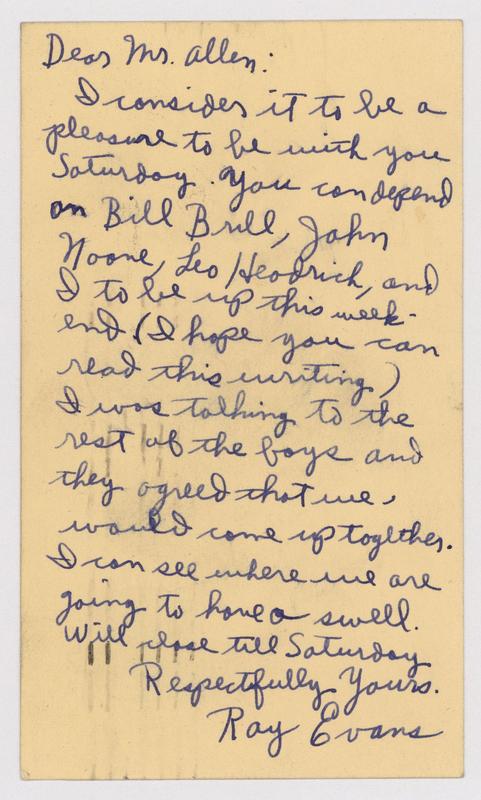 Dear Mr. Allen:
I consider it to be a
pleasure to be with you
Saturday. You can depend
on Bill Brill, John
Noone, Leo Headrich, and
I to be up this week-
end (I hope you can
read this writing)
I was talking to the
rest of the boys and
they agreed that we
would come up together.
I can see where we are
going to have a swell.
Will close till Saturday
Respectfully Yours.
Ray Evans